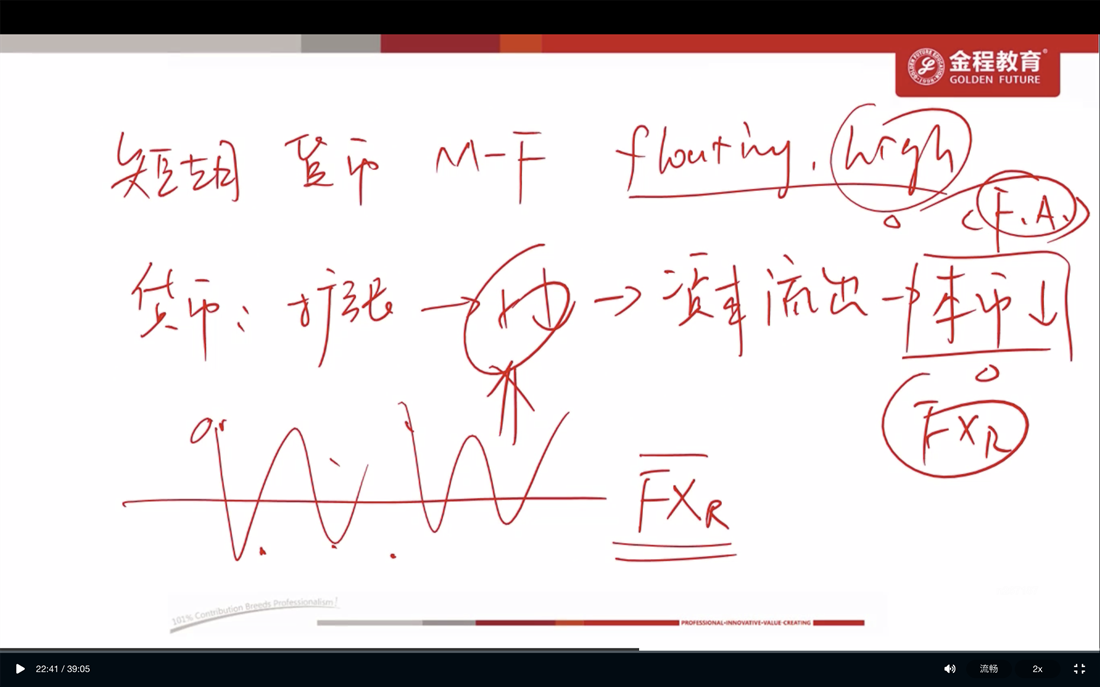 金程教育®
GOLDEN FUTURE
短期 货币 M-F floating, high
(F.A.)
货币: 扩张 → i↓ → 资本流出 → 本币↓
FX_R
FX_R
101% Contribution Breeds Professionalism
PROFESSIONAL·INNOVATIVE·VALUE-CREATING
22:41 / 39:05
流畅
2x